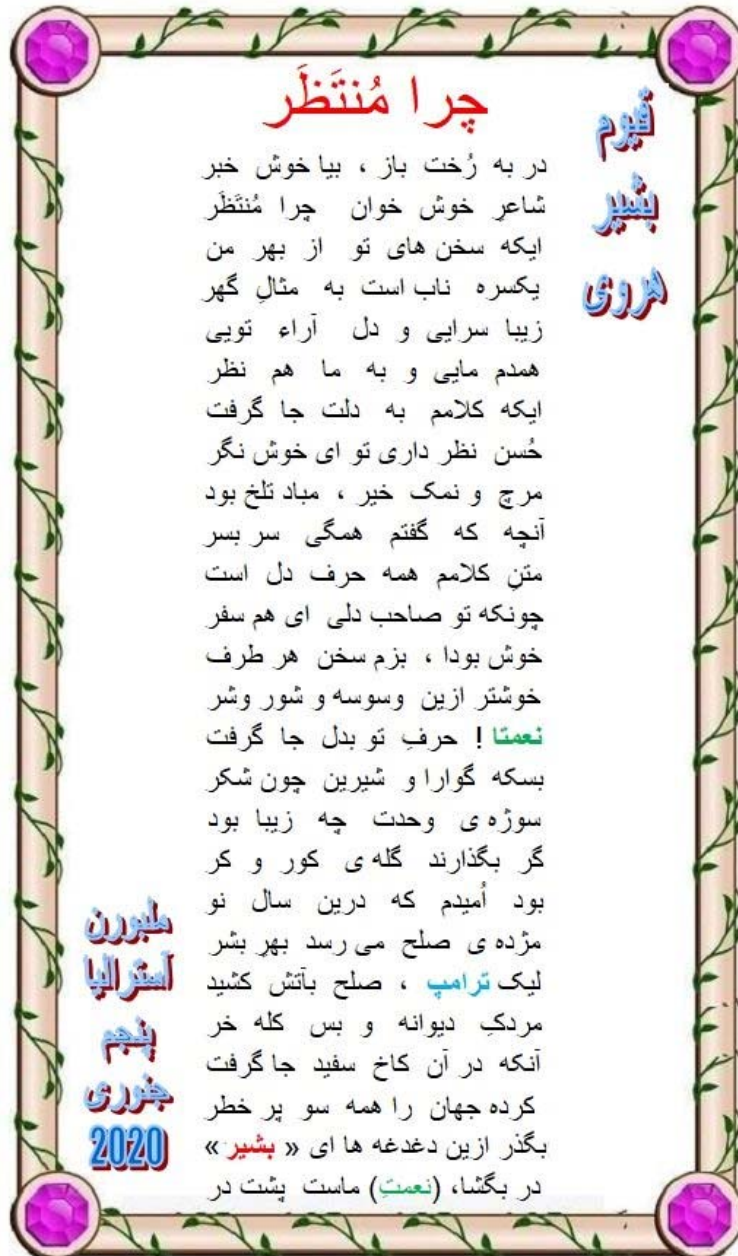 چرا مُنتَظَر
قیوم
بشیر
هروی
در به رُخت باز ، بیا خوش خبر
شاعرِ خوش خوان چرا مُنتَظَر
ایکه سخن های تو از بهر من
یکسره ناب است به مثالِ گهر
زیبا سرایی و دل آراء تویی
همدم مایی و به ما هم نظر
ایکه کلامم به دلت جا گرفت
حُسن نظر داری تو ای خوش نگر
مرچ و نمک خیر ، مباد تلخ بود
آنچه که گفتم همگی سر بسر
متنِ کلامم همه حرف دل است
چونکه تو صاحب دلی ای هم سفر
خوش بودا ، بزم سخن هر طرف
خوشتر ازین وسوسه و شور وشر
نعمتا ! حرفِ تو بدل جا گرفت
بسکه گوارا و شیرین چون شکر
سوژه ی وحدت چه زیبا بود
گر بگذارند گله ی کور و کر
بود اُمیدم که درین سال نو
مژده ی صلح می رسد بهرِ بشر
لیک ترامپ ، صلح بآتش کشید
مردکِ دیوانه و بس کله خر
آنکه در آن کاخ سفید جا گرفت
کرده جهان را همه سو پر خطر
بگذر ازین دغدغه ها ای « بشیر »
در بگشا، (نعمتِ) ماست پشت در
ملبورن
آسترالیا
پنجم
جنوری
2020